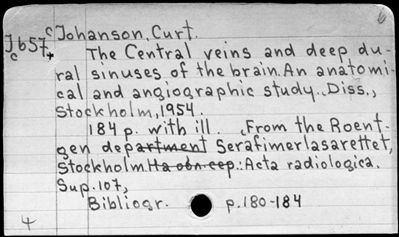 Jb57 Johanson, Curt.
c + The Central veins and deep du-
ral sinuses of the brain. An anatomi-
cal and angiographic study. Diss.,
Stockholm, 1954.
184 p. with ill. From the Roent-
gen department Serafimerlasarettet,
Stockholm. На обл. сер.: Acta radiologica.
Sup. 107,
Bibliogr. p. 180-184